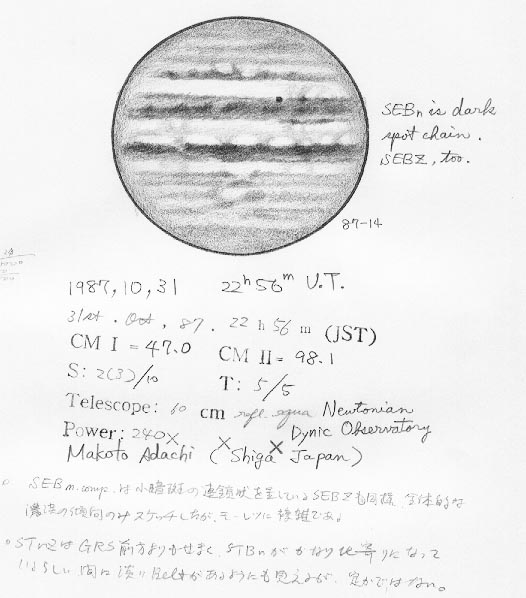 SEBn is dark
spot chain.
SEBZ, too.
87-14
1987, 10, 31 22h 56m U.T.
31st. Oct, 87. 22 h 56 m (JST)
CM I = 47.0 CM II = 98.1
S: 2(3)/10 T: 5/5
Telescope: 60 cm refl equa Newtonian
Power: 240× × Dynic Observatory
Makoto Adachi ( Shiga × Japan )
SEBn.comp. は小暗斑の連鎖状を呈している SEBZも同様、全体的な
濃淡の傾向のみスケッチしたが、モーレツに複雑である
STrZはGRS前方よりかせまく、STBnがかなり北寄りになって
いるらしい 間に淡いBeltがあるようにも見えるが、定かではない。